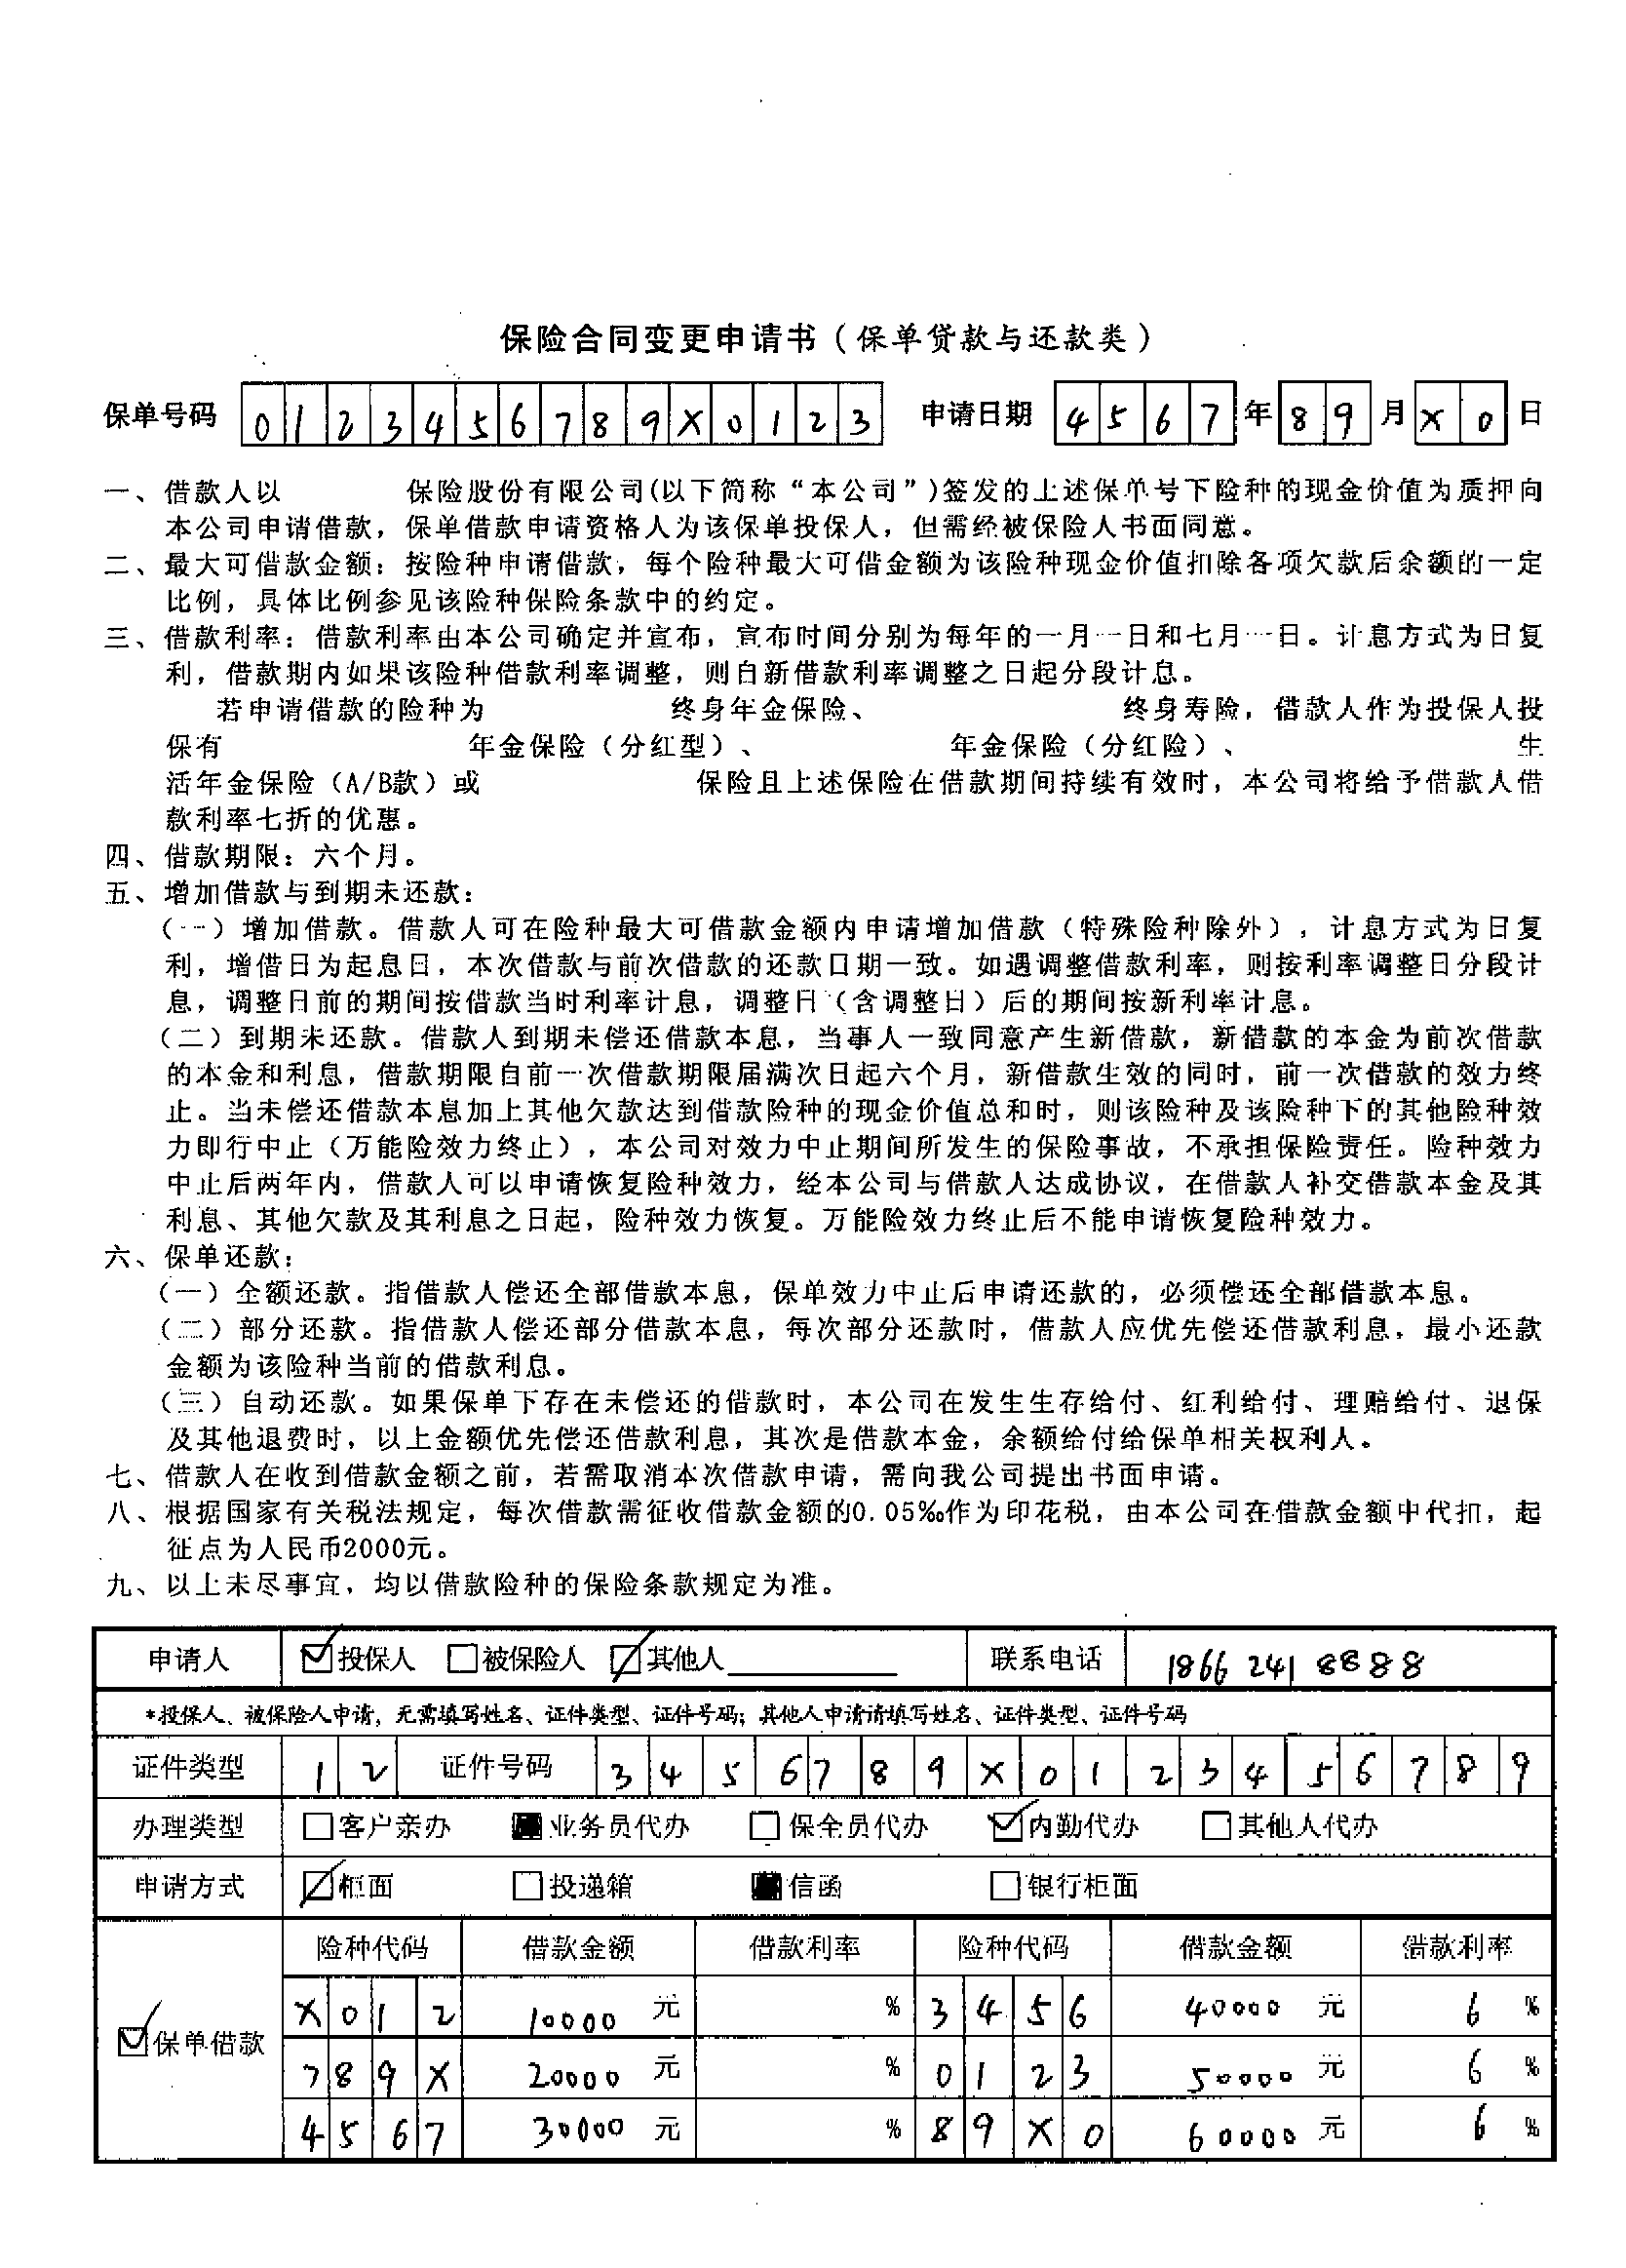 保险合同变更申请书（保单贷款与还款类）
保单号码 0123456789X0123 申请日期 4567年89月X0日
一、借款人以 保险股份有限公司(以下简称“本公司”)签发的上述保单号下险种的现金价值为质押向
本公司申请借款，保单借款申请资格人为该保单投保人，但需经被保险人书面同意。
二、最大可借款金额：按险种申请借款，每个险种最大可借金额为该险种现金价值扣除各项欠款后余额的一定
比例，具体比例参见该险种保险条款中的约定。
三、借款利率：借款利率由本公司确定并宣布，宣布时间分别为每年的一月一日和七月一日。计息方式为日复
利，借款期内如果该险种借款利率调整，则自新借款利率调整之日起分段计息。
若申请借款的险种为 终身年金保险、 终身寿险，借款人作为投保人投
保有 年金保险（分红型）、 年金保险（分红险）、 生
活年金保险（A/B款）或 保险且上述保险在借款期间持续有效时，本公司将给予借款人借
款利率七折的优惠。
四、借款期限：六个月。
五、增加借款与到期未还款：
（一）增加借款。借款人可在险种最大可借款金额内申请增加借款（特殊险种除外），计息方式为日复
利，增借日为起息日，本次借款与前次借款的还款日期一致。如遇调整借款利率，则按利率调整日分段计
息，调整日前的期间按借款当时利率计息，调整日（含调整日）后的期间按新利率计息。
（二）到期未还款。借款人到期未偿还借款本息，当事人一致同意产生新借款，新借款的本金为前次借款
的本金和利息，借款期限自前一次借款期限届满次日起六个月，新借款生效的同时，前一次借款的效力终
止。当未偿还借款本息加上其他欠款达到借款险种的现金价值总和时，则该险种及该险种下的其他险种效
力即行中止（万能险效力终止），本公司对效力中止期间所发生的保险事故，不承担保险责任。险种效力
中止后两年内，借款人可以申请恢复险种效力，经本公司与借款人达成协议，在借款人补交借款本金及其
利息、其他欠款及其利息之日起，险种效力恢复。万能险效力终止后不能申请恢复险种效力。
六、保单还款：
（一）全额还款。指借款人偿还全部借款本息，保单效力中止后申请还款的，必须偿还全部借款本息。
（二）部分还款。指借款人偿还部分借款本息，每次部分还款时，借款人应优先偿还借款利息，最小还款
金额为该险种当前的借款利息。
（三）自动还款。如果保单下存在未偿还的借款时，本公司在发生生存给付、红利给付、理赔给付、退保
及其他退费时，以上金额优先偿还借款利息，其次是借款本金，余额给付给保单相关权利人。
七、借款人在收到借款金额之前，若需取消本次借款申请，需向我公司提出书面申请。
八、根据国家有关税法规定，每次借款需征收借款金额的0.05‰作为印花税，由本公司在借款金额中代扣，起
征点为人民币2000元。
九、以上未尽事宜，均以借款险种的保险条款规定为准。
申请人 ☑投保人 □被保险人 ☑其他人 联系电话 18662418888
*投保人、被保险人申请，无需填写姓名、证件类型、证件号码；其他人申请请填写姓名、证件类型、证件号码
证件类型 12 证件号码 3456789X0123456789
办理类型 □客户亲办 ■业务员代办 □保全员代办 ☑内勤代办 □其他人代办
申请方式 ☑柜面 □投递箱 ■信函 □银行柜面
险种代码 借款金额 借款利率 险种代码 借款金额 借款利率
X012 10000 元 % 3456 40000 元 6 %
☑保单借款
789X 20000 元 % 0123 50000 元 6 %
4567 30000 元 % 89X0 60000 元 6 %